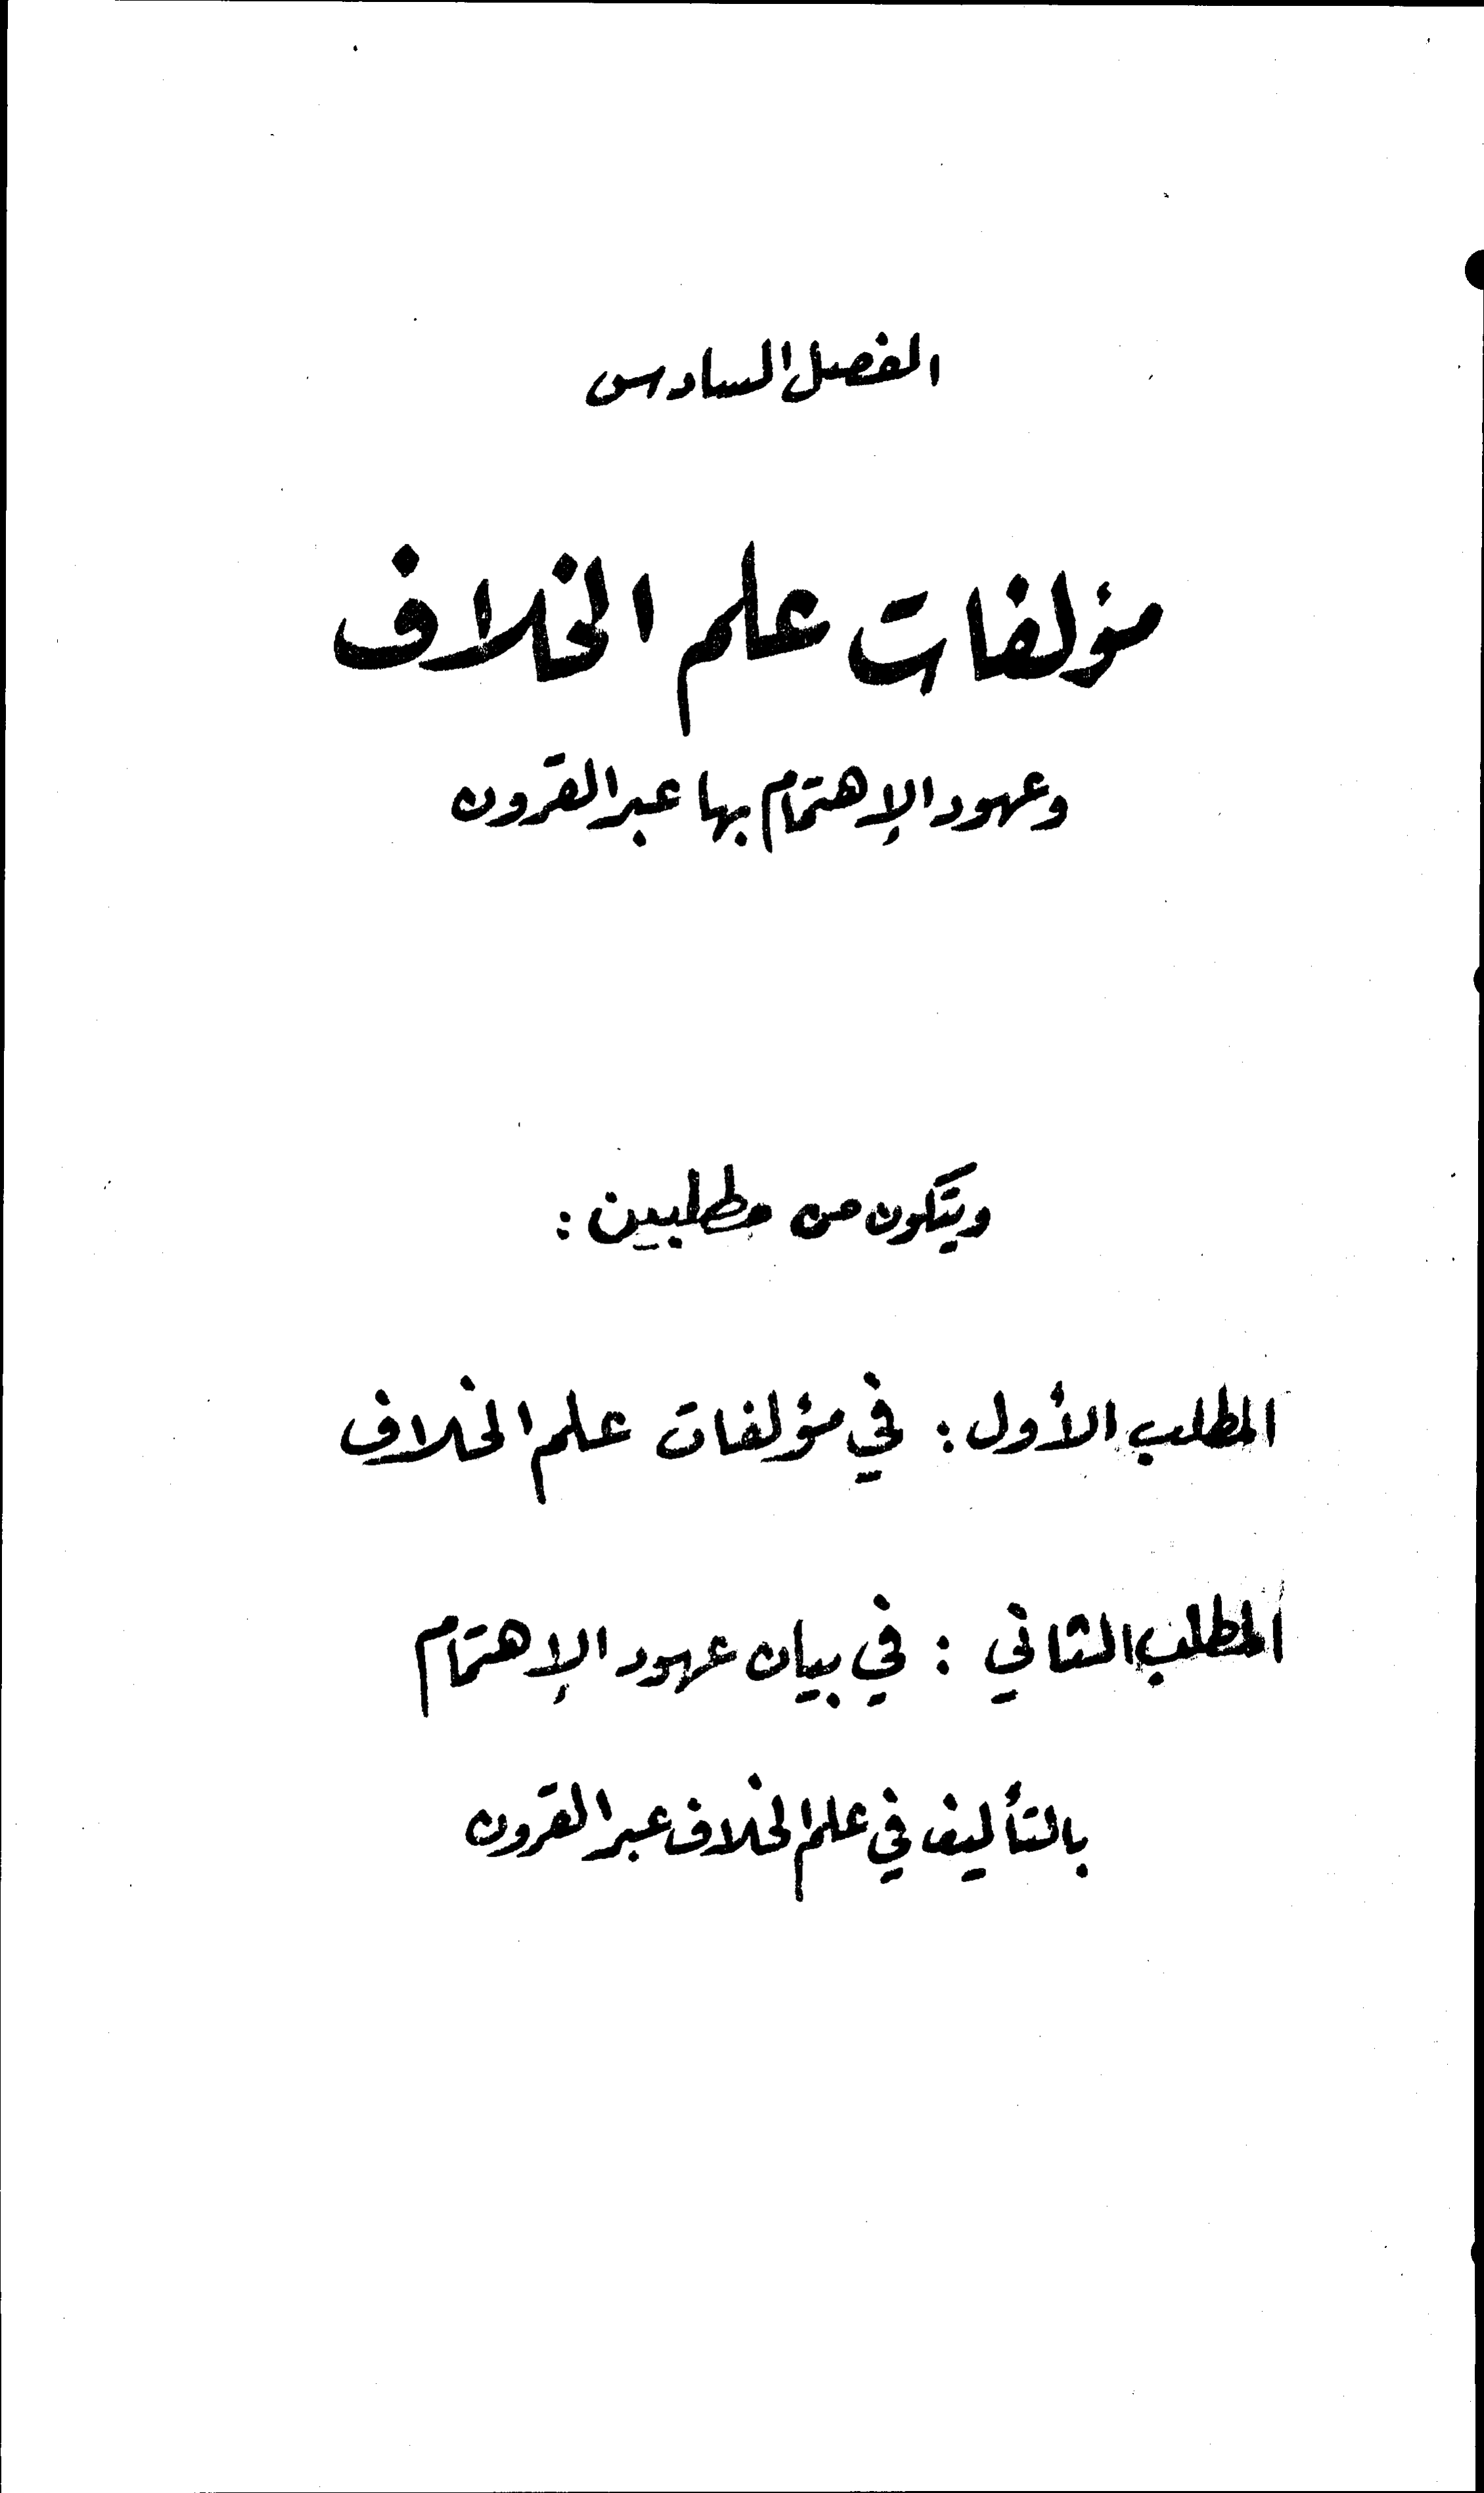 الفصل السادس
مؤلفات علم الخلاف
وعهود الإهتمام بها عبر القرون
ويتكون من مطلبين:
المطلب الأول: في مؤلفات علم الخلاف
المطلب الثاني : في بيان عهود الإهتمام
بالتأليف في علم الخلاف عبر القرون